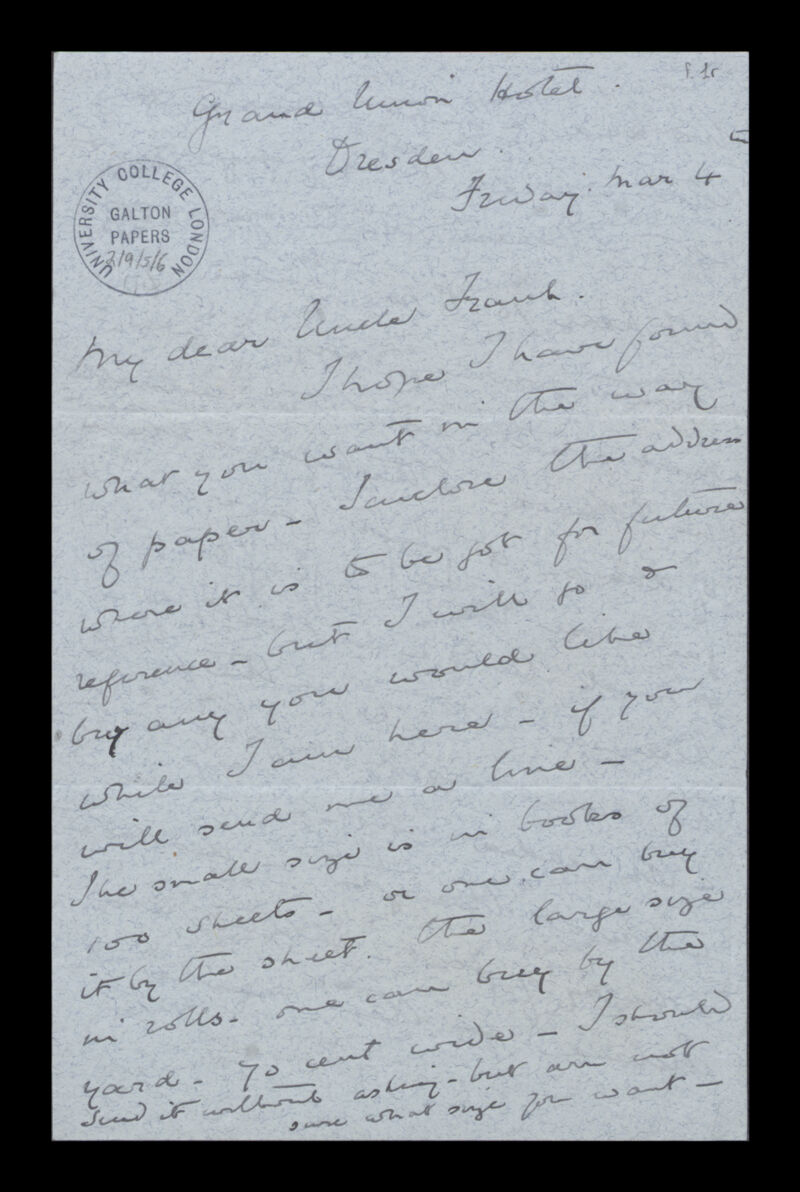 f.1r
Grand Union Hotel.
Dresden.
Friday. Mar 4th
UNIVERSITY COLLEGE LONDON
GALTON
PAPERS
2/9/5/6
My dear Uncle Frank.
I hope I have found
what you want in the way
of paper - I enclose the address
where it is to be got for future
reference - but I will go &
buy any you would like
while I am here - if you
will send me a line -
The small size is in books of
100 sheets - or one can buy
it by the sheet. The large size
in rolls - one can buy by the
yard - 70 cent wide - I should
send it without asking - but am not
sure what size you want -